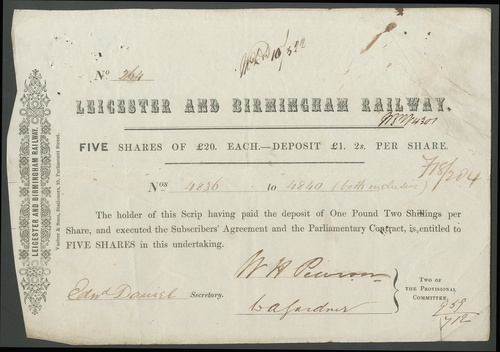 No. 264
LEICESTER AND BIRMINGHAM RAILWAY.
FIVE SHARES OF £20. EACH.—DEPOSIT £1. 2s. PER SHARE.
718/284
Nos 4836 to 4840 (both inclusive)
The holder of this Scrip having paid the deposit of One Pound Two Shillings per
Share, and executed the Subscribers' Agreement and the Parliamentary Contract, is entitled to
FIVE SHARES in this undertaking.
Edwd Daniel Secretary.
W H Pearson
Gardner
TWO OF
THE PROVISIONAL
COMMITTEE.
LEICESTER AND BIRMINGHAM RAILWAY.